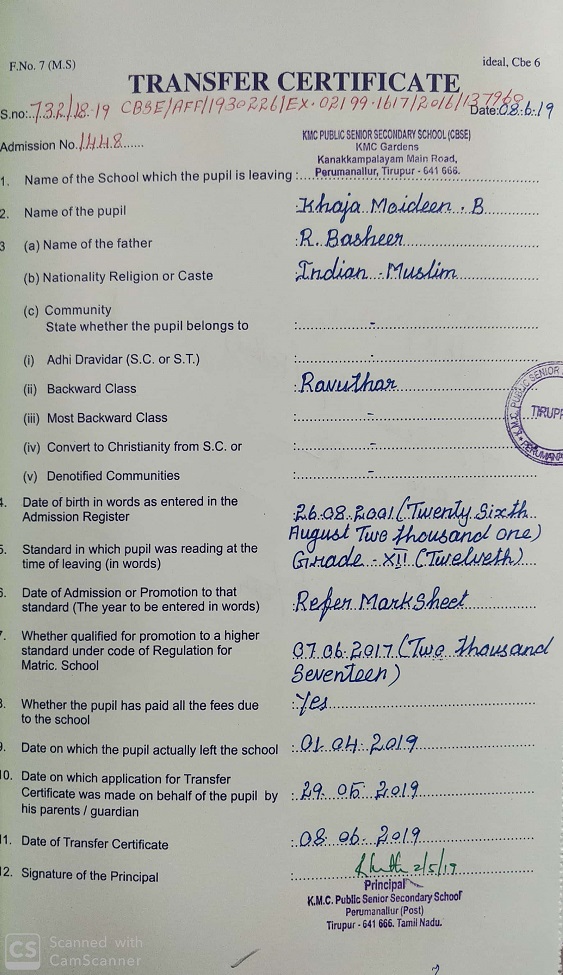 F.No. 7 (M.S)
ideal, Cbe 6
TRANSFER CERTIFICATE
S.no:..732/18-19 CBSE/AFF/1930226/EX-02199-1617/2016/137968 Date:08.6.19
Admission No.1448......
KMC PUBLIC SENIOR SECONDARY SCHOOL (CBSE)
KMC Gardens
Kanakkampalayam Main Road,
Perumanallur, Tirupur - 641 666.
1. Name of the School which the pupil is leaving :
2. Name of the pupil :Khaja Maideen . B
3 (a) Name of the father :R. Basheer
(b) Nationality Religion or Caste :Indian - Muslim
(c) Community
State whether the pupil belongs to : -
(i) Adhi Dravidar (S.C. or S.T.) : -
(ii) Backward Class :Ravuthar
(iii) Most Backward Class : -
(iv) Convert to Christianity from S.C. or : -
(v) Denotified Communities : -
K.M.C. PUBLIC SENIOR
TIRUPP
PERUMANA
4. Date of birth in words as entered in the
Admission Register
:26.08.2001 (Twenty Sixth
August Two thousand one)
5. Standard in which pupil was reading at the
time of leaving (in words)
Grade - XII (Twelveth)
6. Date of Admission or Promotion to that
standard (The year to be entered in words)
:Refer MarkSheet
7. Whether qualified for promotion to a higher
standard under code of Regulation for
Matric. School
:07.06.2017 (Two thousand
Seventeen)
8. Whether the pupil has paid all the fees due
to the school
:Yes
9. Date on which the pupil actually left the school :01.04.2019
10. Date on which application for Transfer
Certificate was made on behalf of the pupil by
his parents / guardian
:29.05.2019
11. Date of Transfer Certificate :08.06.2019
12. Signature of the Principal : 2/5/19
Principal
K.M.C. Public Senior Secondary School
Perumanallur (Post)
Tirupur - 641 666. Tamil Nadu.
CS Scanned with
CamScanner